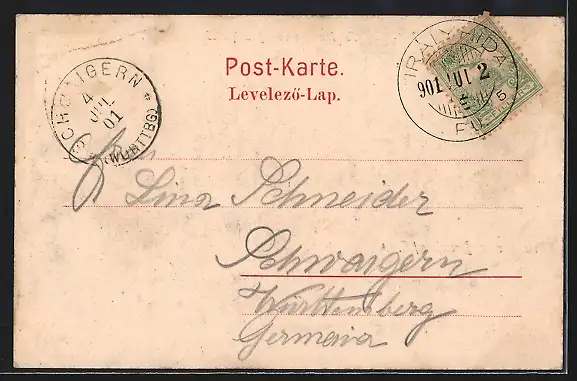 Post-Karte.
Levelező-Lap.
SCHWAIGERN
4
JUL
01
(WÜRTTBG)
KIRÁLYHIDA
901 JUL 2
5
Frau
Lina Schneider
Schwaigern
Württemberg
Germania